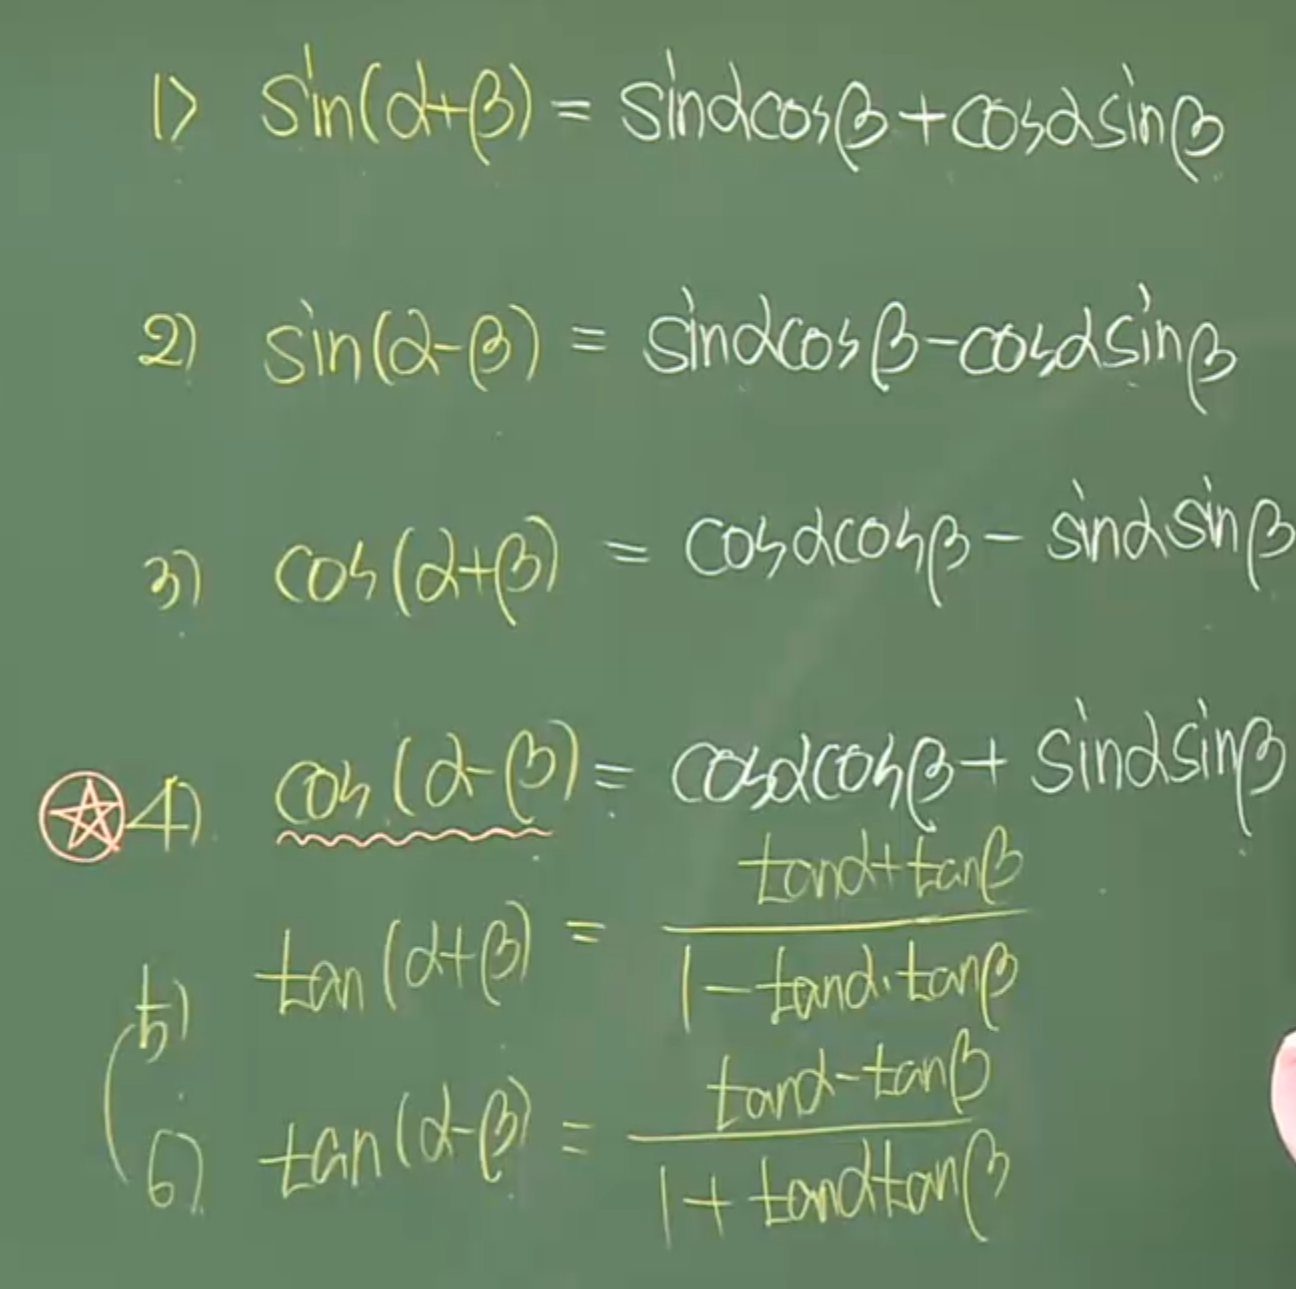 1) sin(α+β) = sinαcosβ+cosαsinβ
2) sin(α-β) = sinαcosβ-cosαsinβ
3) cos(α+β) = cosαcosβ - sinαsinβ
4) cos(α-β) = cosαcosβ + sinαsinβ
tanα+tanβ
5) tan(α+β) =
1-tanα·tanβ
tanα-tanβ
6) tan(α-β) =
1+tanαtanβ